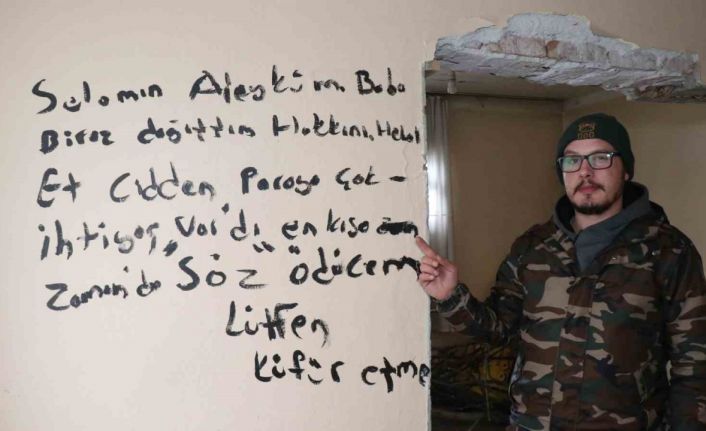 Selamın Aleyküm Baba
Biraz dağıttım Hakkını Helal
Et Cidden Paraya Çok -
ihtiyaç Var'dı en kısa
Zaman'da "SÖZ" Ödücem
Lütfen
Küfür etme